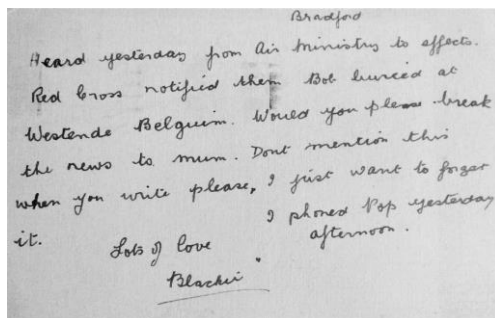 Bradford
Heard yesterday from Air Ministry to effects.
Red Cross notified them Bob buried at
Westende Belguim. Would you please break
the news to mum. Dont mention this
when you write please, I just want to forget
it.
I phoned Pop yesterday
afternoon.
Lots of love
Blackie